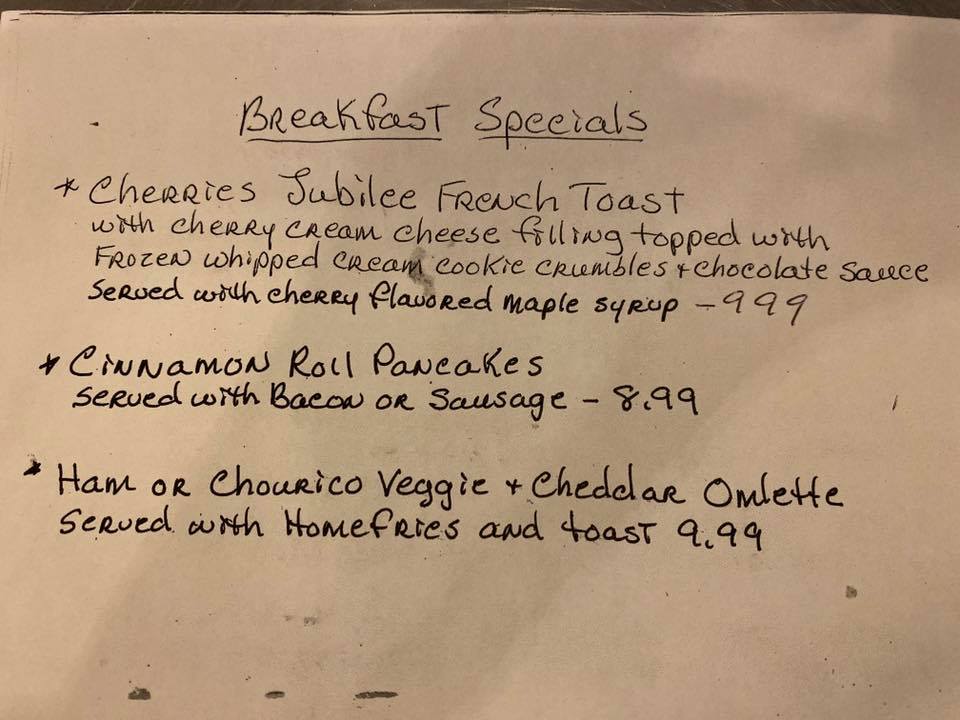 Breakfast Specials
* Cherries Jubilee French Toast
with cherry cream cheese filling topped with
Frozen whipped cream cookie crumbles + chocolate sauce
served with cherry flavored maple syrup - 999
* Cinnamon Roll Pancakes
served with Bacon or Sausage - 8.99
* Ham or Chourico Veggie + Cheddar Omlette
served with Homefries and toast 9.99